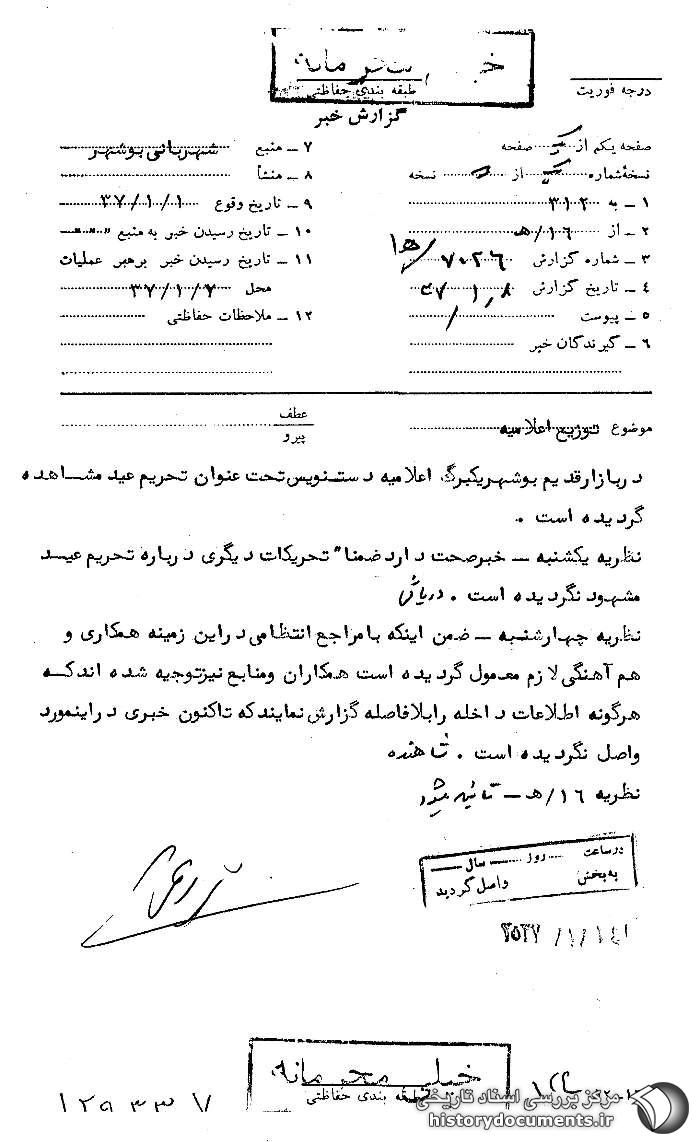 خیلی محرمانه
طبقه بندی حفاظتی
درجه فوریت
گزارش خبر
صفحه یکم از صفحه
نسخهٔ شماره از نسخه
۱ ـ به ۳۱۲
۲ ـ از ۱۶/ه‍
۳ ـ شماره گزارش ۷۰۲۶/ه‍ ۱
۴ ـ تاریخ گزارش ۳۷/۱/۸
۵ ـ پیوست
۶ ـ گیرندگان خبر
۷ ـ منبع شهربانی بوشهر
۸ ـ منشأ
۹ ـ تاریخ وقوع ۳۷/۱/۱
۱۰ ـ تاریخ رسیدن خبر به منبع " " "
۱۱ ـ تاریخ رسیدن خبر برهبر عملیات
محل ۳۷/۱/۷
۱۲ ـ ملاحظات حفاظتی
موضوع توزیع اعلامیه
عطف
پیرو
دربازار قدیم بوشهر یکبرگ اعلامیه دستنویس تحت عنوان تحریم عید مشاهده
گردیده است .
نظریه یکشنبه ـ خبر صحت دارد ضمنا" تحریکات دیگری درباره تحریم عیـد
مشهود نگردیده است .
نظریه چهارشنبه ـ ضمن اینکه با مراجع انتظامی دراین زمینه همکاری و
هم آهنگی لازم معمول گردیده است همکاران ومنابع نیز توجیه شده اند که
هرگونه اطلاعات داخله رابلافاصله گزارش نمایند که تاکنون خبری دراینمورد
واصل نگردیده است .
نظریه ۱۶/ه‍ ـ تائید میشود
در ساعت روز سال
به بخش واصل گردید
۲۵۳۷/۱/۱۴
خیلی محرمانه
طبقه بندی حفاظتی
۱۲۹۳۳۷
مرکز بررسی اسناد تاریخی
historydocuments.ir